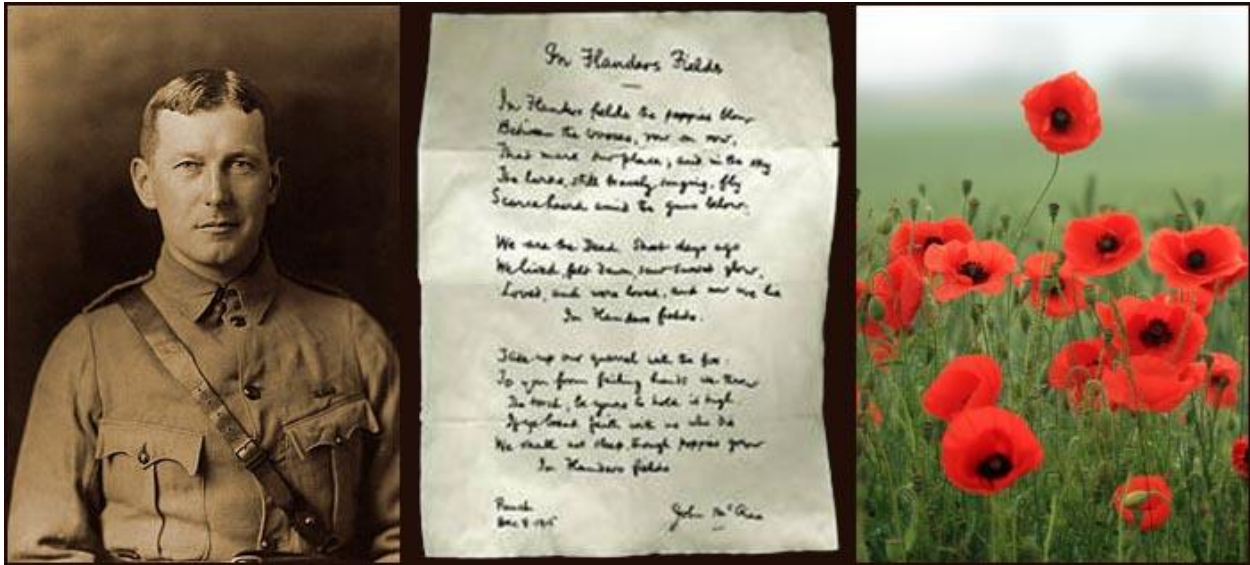 In Flanders Fields
In Flanders fields the poppies blow
Between the crosses, row on row,
That mark our place; and in the sky
The larks, still bravely singing, fly
Scarce heard amid the guns below.
We are the Dead. Short days ago
We lived, felt dawn, saw sunset glow,
Loved, and were loved, and now we lie
In Flanders fields.
Take up our quarrel with the foe:
To you from failing hands we throw
The torch; be yours to hold it high
If ye break faith with us who die
We shall not sleep, though poppies grow
In Flanders fields
Punch
Dec 8 1915
John McCrae